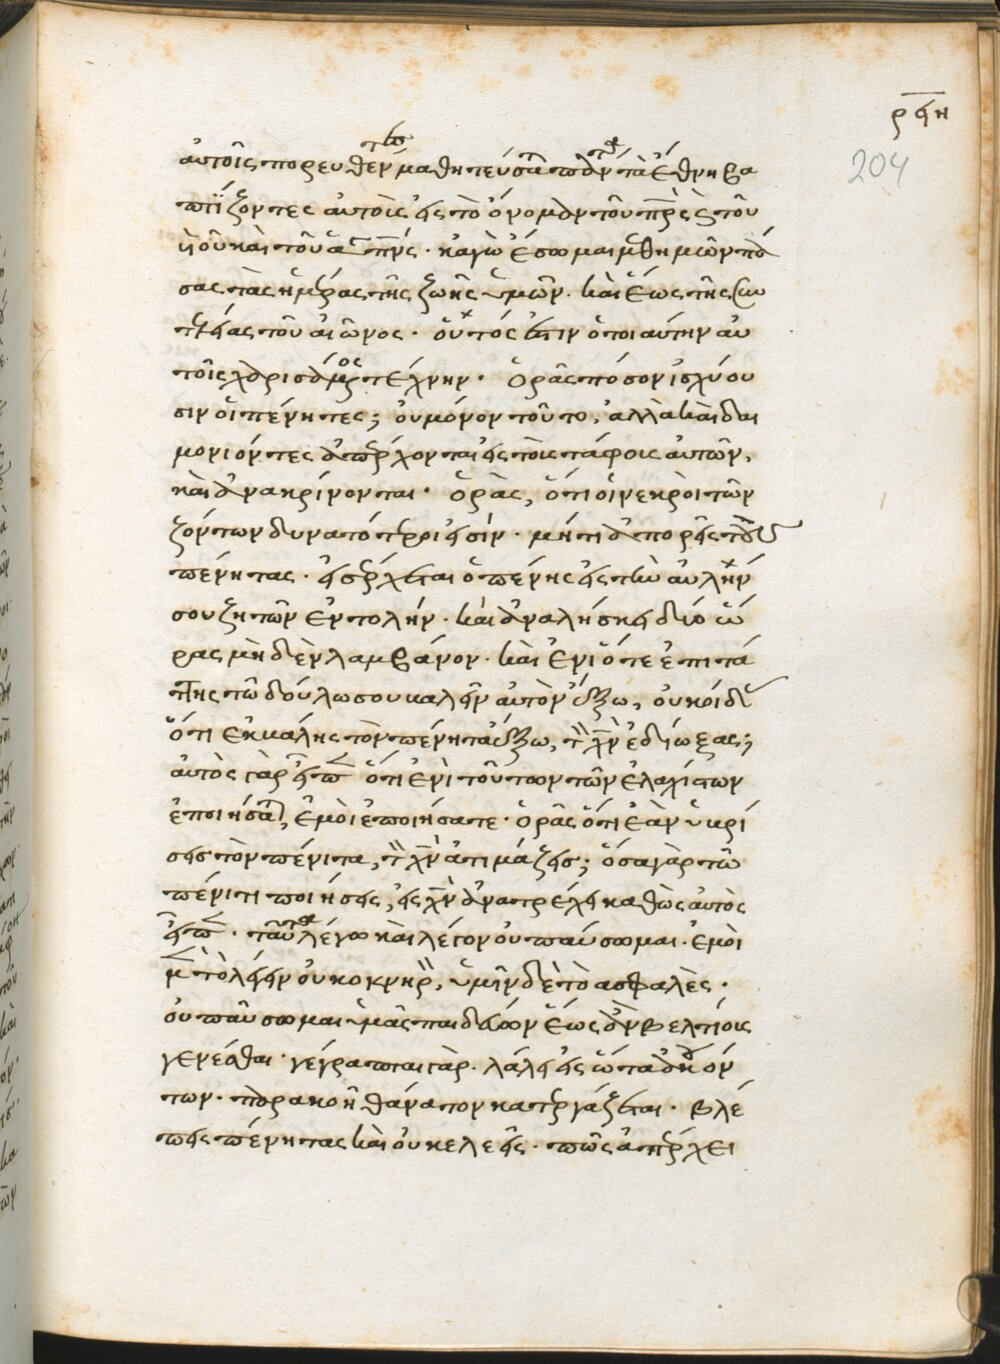 ρϟη
204
αὐτοῖς πορευθέντ(ες) μαθητεύσατε πάντα τὰ ἔθνη βα
πτίζοντες αὐτοὺς εἰς τὸ ὄνομα τοῦ πρς καὶ τοῦ
υἱοῦ καὶ τοῦ ἁγ πνς · κἀγὼ ἔσωμαι μεθημῶν πά
σας τὰς ἡμέρας τῆς ζωῆς ὑμῶν · καὶ ἕως τῆς συν
τελείας τοῦ αἰῶνος · οὗτός ἐστιν ὁ ποι αύτην αὐ
τοῖς χαρισάμενος τέχνην · ὁρᾶς πόσον ἰσχύου
σιν οἱ πένητες ; οὐ μόνον τοῦτο, ἀλλὰ καὶ δαι
μονιόντες ἀπέρχονται εἰς τοὺς τάφοις αὐτῶν,
καὶ ἀνακρίνονται · ὁρᾶς, ὅτι οἱ νεκροὶ τῶν
ζόντων δυνατότεροι εἰσίν · μήτι ἀπορεῖς τοὺς
πένητας · εἰσέρχεται ὁ πένης εἰς τὴν αὐλήν
σου ζητῶν ἐντολήν · καὶ ἀναλήσκει δύο ὥ
ρας μηδὲν λαμβάνον · καὶ ἔνι ὅτε ἐπιτά
της τῶ δούλω σου καλεῖν αὐτὸν ἔξω, οὐκ οἶδας
ὅτι ἐκκαλῆς τὸν πένητα ἔξω, τὸν χν ἐδίωξας ;
αὐτὸς γὰρ εἶπεν ὅτι ἑνὶ τοῦτων τῶν ἐλαχίστων
ἐποιήσατε, ἐμοὶ ἐποιήσατε · ὁρᾶς ὅτι ἐὰν ὑβρί
σεις τὸν πένιτα, τὸν χν ἀτιμάζεις ; ὅσα γὰρ τῶ
πένιτι ποιήσεις, εἰς χν ἀνατρέχει καθὼς αὐτὸς
εἶπεν · ταῦτα λέγω καὶ λέγον οὐ παύσωμαι · ἐμοὶ
μὲν τὸ λέγειν οὐκ ὀκνηρὸν, ὑμῖν δὲ τὸ ασφαλὲς ·
οὐ παύσωμαι ὑμᾶς παιδεύων ἕως ἂν βελτίοις
γενέσθαι · γέγραπται γὰρ · λάλει εἰς ὦτα ἀκουόν
των · παρακοὴ θάνατον κατεργάζεται · βλέ
πεις πένητας καὶ οὐκ ἐλεεῖς · πῶς ἀπέρχει